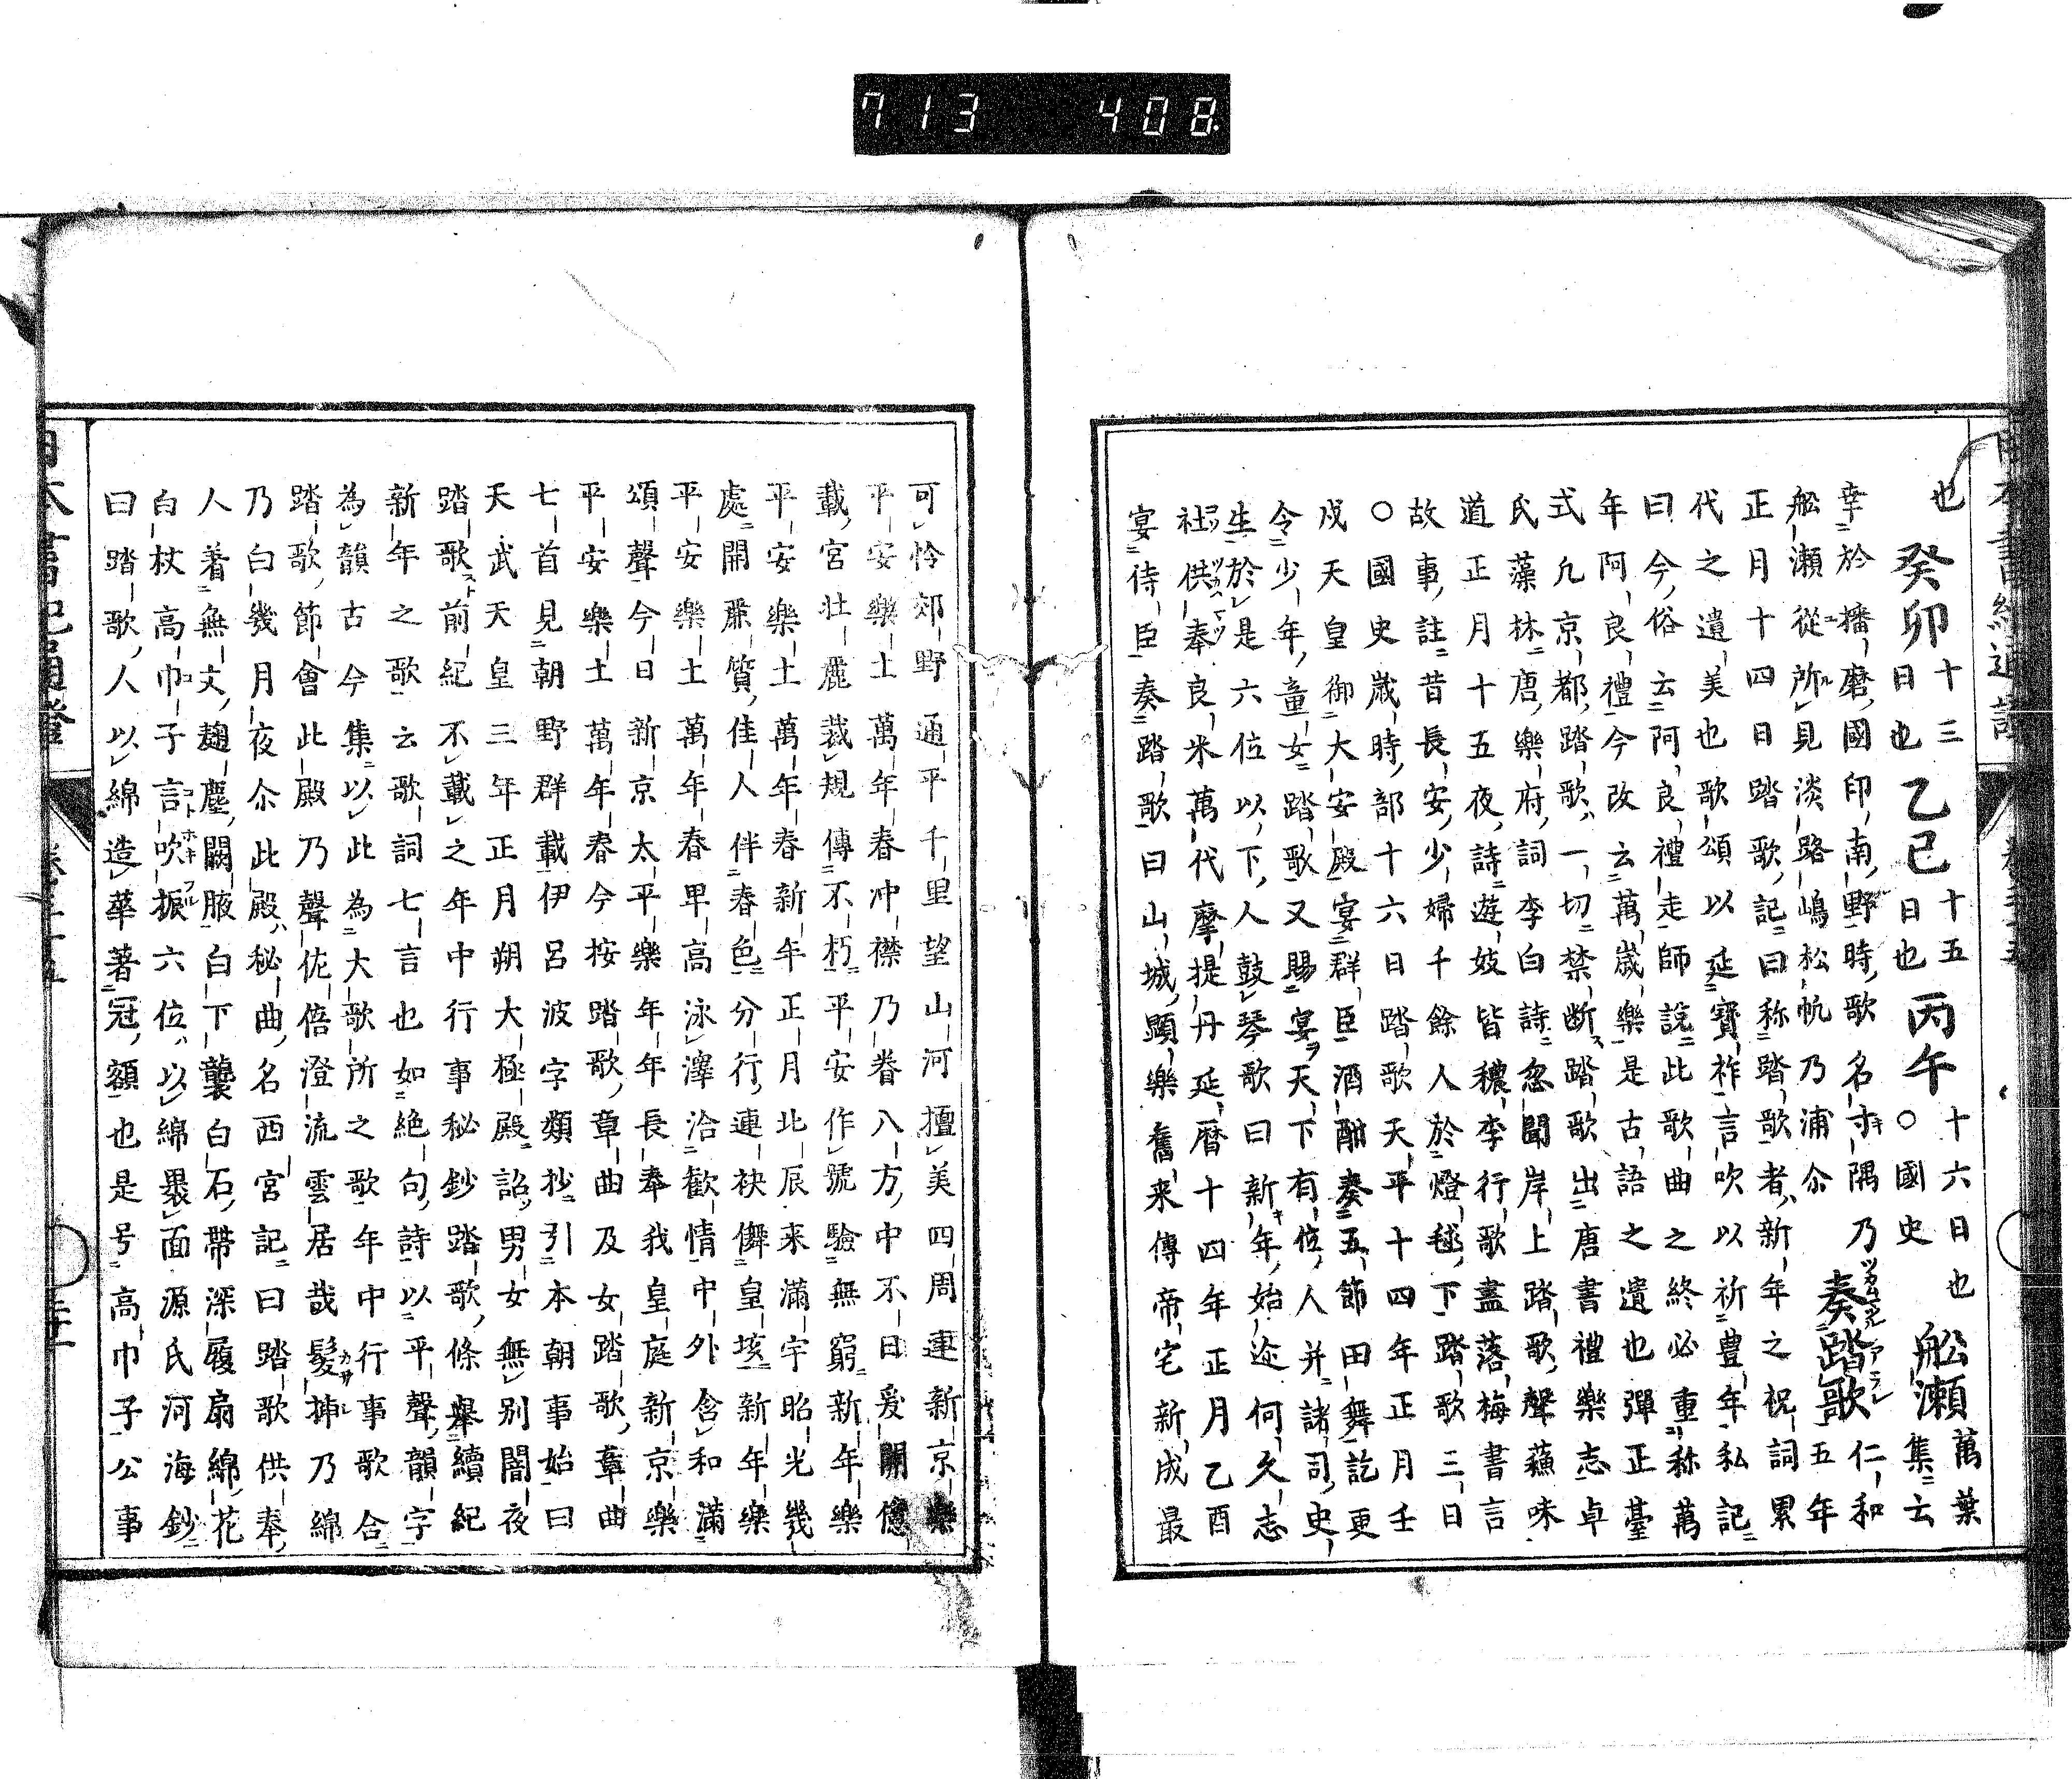 713 408
也癸卯十三日也乙巳十五日也丙午十六日也○國史船瀬萬葉集云
幸於播磨國印南野時歌名寸隅乃
船瀬從所見淡路嶋松帆乃浦尒奏踏歌仁和五年
正月十四日踏歌記曰称踏歌者新年之祝詞累
代之遺美也歌頌以延寶祚言吹以祈豊年私記
曰今俗云阿良禮走師說此歌曲之終必重称萬
年阿良禮今改云萬歲樂是古語之遺也彈正臺
式凡京都踏歌一切禁断踏歌出唐書禮樂志卓
氏藻林唐樂府詞李白詩忽聞岸上踏歌聲蘓味
道正月十五夜詩遊妓皆穠李行歌盡落梅書言
故事註昔長安少婦千餘人於燈毬下踏歌三日
○國史歲時部十六日踏歌天平十四年正月壬
戌天皇御大安殿宴群臣酒酣奏五節田舞訖更
令少年童女踏歌又賜宴天下有位人并諸司史
生於是六位以下人鼓琴歌曰新年始迩何久志
社供奉良米萬代摩提丹延暦十四年正月乙酉
宴侍臣奏踏歌曰山城顯樂舊来傳帝宅新成最
可怜郊野通平千里望山河擅美四周連新京樂
平安樂土萬年春冲襟乃眷八方中不日爰開億
載宮壮麗裁規傳不朽平安作號驗無窮新年樂
平安樂土萬年春新年正月北辰来滿宇昭光幾
處開麗質佳人伴春色分行連袂儛皇垓新年樂
平安樂土萬年春卑高泳澤洽歡情中外含和滿
頌聲今日新京太平樂年年長奉我皇庭新京樂
平安樂土萬年春今按踏歌章曲及女踏歌章曲
七首見朝野群載伊呂波字類抄引本朝事始曰
天武天皇三年正月朔大極殿詔男女無別闇夜
踏歌前紀不載之年中行事秘鈔踏歌條舉續紀
新年之歌云歌詞七言也如絶句詩以平聲韻字
為韻古今集以此為大歌所之歌年中行事歌合
踏歌節會此殿乃聲佐倍澄流雲居哉髮挿乃綿
乃白幾月夜尒此殿秘曲名西宮記曰踏歌供奉
人着無文麹塵闕腋白下襲白石帯深履扇綿花
白杖高巾子言吹振六位以綿裹面源氏河海鈔
曰踏歌人以綿造華著冠額也是号高巾子公事